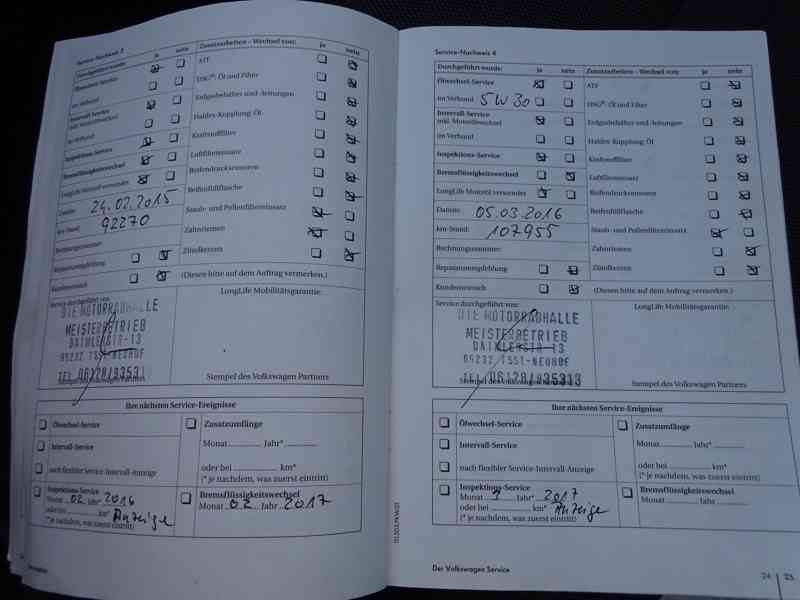 Service-Nachweis 3
Durchgeführt wurde: ja nein
Ölwechsel-Service
im Verbund
Intervall-Service
inkl. Motorölwechsel
im Verbund
Inspektions-Service
Bremsflüssigkeitswechsel
LongLife Motoröl verwendet
Datum: 24.02.2015
km-Stand: 92270
Rechnungsnummer:
Reparaturempfehlung
Kundenwunsch
Zusatzarbeiten – Wechsel von: ja nein
ATF
DSG®: Öl und Filter
Erdgasbehälter und -leitungen
Haldex-Kupplung: Öl
Kraftstofffilter
Luftfiltereinsatz
Reifendrucksensoren
Reifenfüllflasche
Staub- und Pollenfiltereinsatz
Zahnriemen
Zündkerzen
(Diesen bitte auf dem Auftrag vermerken.)
Service durchgeführt von:
DIE MOTORRADHALLE
MEISTERBETRIEB
DAIMLERSTR-13
65232 TSST-NEUHOF
TEL 06128/935313
Stempel des Volkswagen Partners
LongLife Mobilitätsgarantie:
Stempel des Volkswagen Partners
Ihre nächsten Service-Ereignisse
Ölwechsel-Service
Intervall-Service
nach flexibler Service-Intervall-Anzeige
Zusatzumfänge
Monat Jahr*
oder bei km*
(* je nachdem, was zuerst eintritt)
Inspektions-Service
Monat 02 Jahr 2016
oder bei km* Anzeige
(* je nachdem, was zuerst eintritt)
Bremsflüssigkeitswechsel
Monat 02 Jahr 2017
Service-Nachweis 4
Durchgeführt wurde: ja nein
Ölwechsel-Service
im Verbund 5W30
Intervall-Service
inkl. Motorölwechsel
im Verbund
Inspektions-Service
Bremsflüssigkeitswechsel
LongLife Motoröl verwendet
Datum: 05.03.2016
km-Stand: 107955
Rechnungsnummer:
Reparaturempfehlung
Kundenwunsch
Zusatzarbeiten – Wechsel von: ja nein
ATF
DSG®: Öl und Filter
Erdgasbehälter und -leitungen
Haldex-Kupplung: Öl
Kraftstofffilter
Luftfiltereinsatz
Reifendrucksensoren
Reifenfüllflasche
Staub- und Pollenfiltereinsatz
Zahnriemen
Zündkerzen
(Diesen bitte auf dem Auftrag vermerken.)
Service durchgeführt von:
DIE MOTORRADHALLE
MEISTERBETRIEB
DAIMLERSTR 13
65232 TSST-NEUHOF
TEL 06128/935313
Stempel des Volkswagen Partners
LongLife Mobilitätsgarantie:
Stempel des Volkswagen Partners
Ihre nächsten Service-Ereignisse
Ölwechsel-Service
Intervall-Service
nach flexibler Service-Intervall-Anzeige
Zusatzumfänge
Monat Jahr*
oder bei km*
(* je nachdem, was zuerst eintritt)
Inspektions-Service
Monat Jahr* 2017
oder bei km* Anzeige
(* je nachdem, was zuerst eintritt)
Bremsflüssigkeitswechsel
Monat Jahr
Der Volkswagen Service
24 25